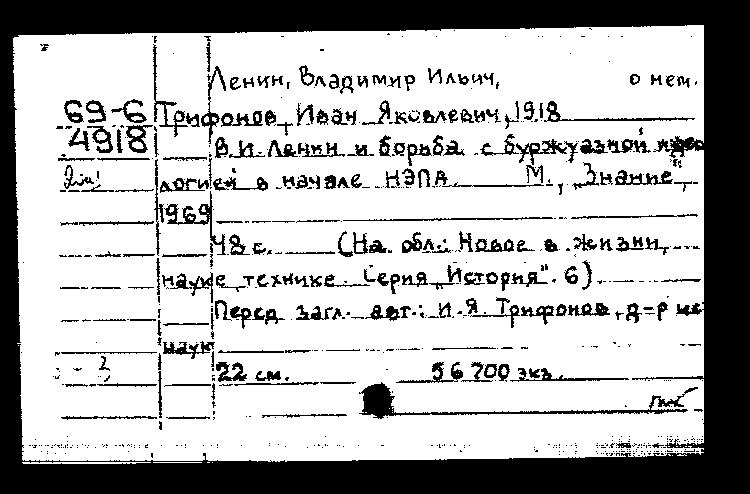 Ленин, Владимир Ильич, о нем.
69-6 Трифонов, Иван Яковлевич, 1918
4918 В.И. Ленин и борьба с буржуазной идео
2ой! логией в начале НЭПА. М., „Знание",
1969
48 с. (На обл.: Новое в жизни,
науке, технике. Серия „История". 6)
Перед загл. авт.: И.Я. Трифонов, д-р ис
наук
22 см. 56 700 экз.